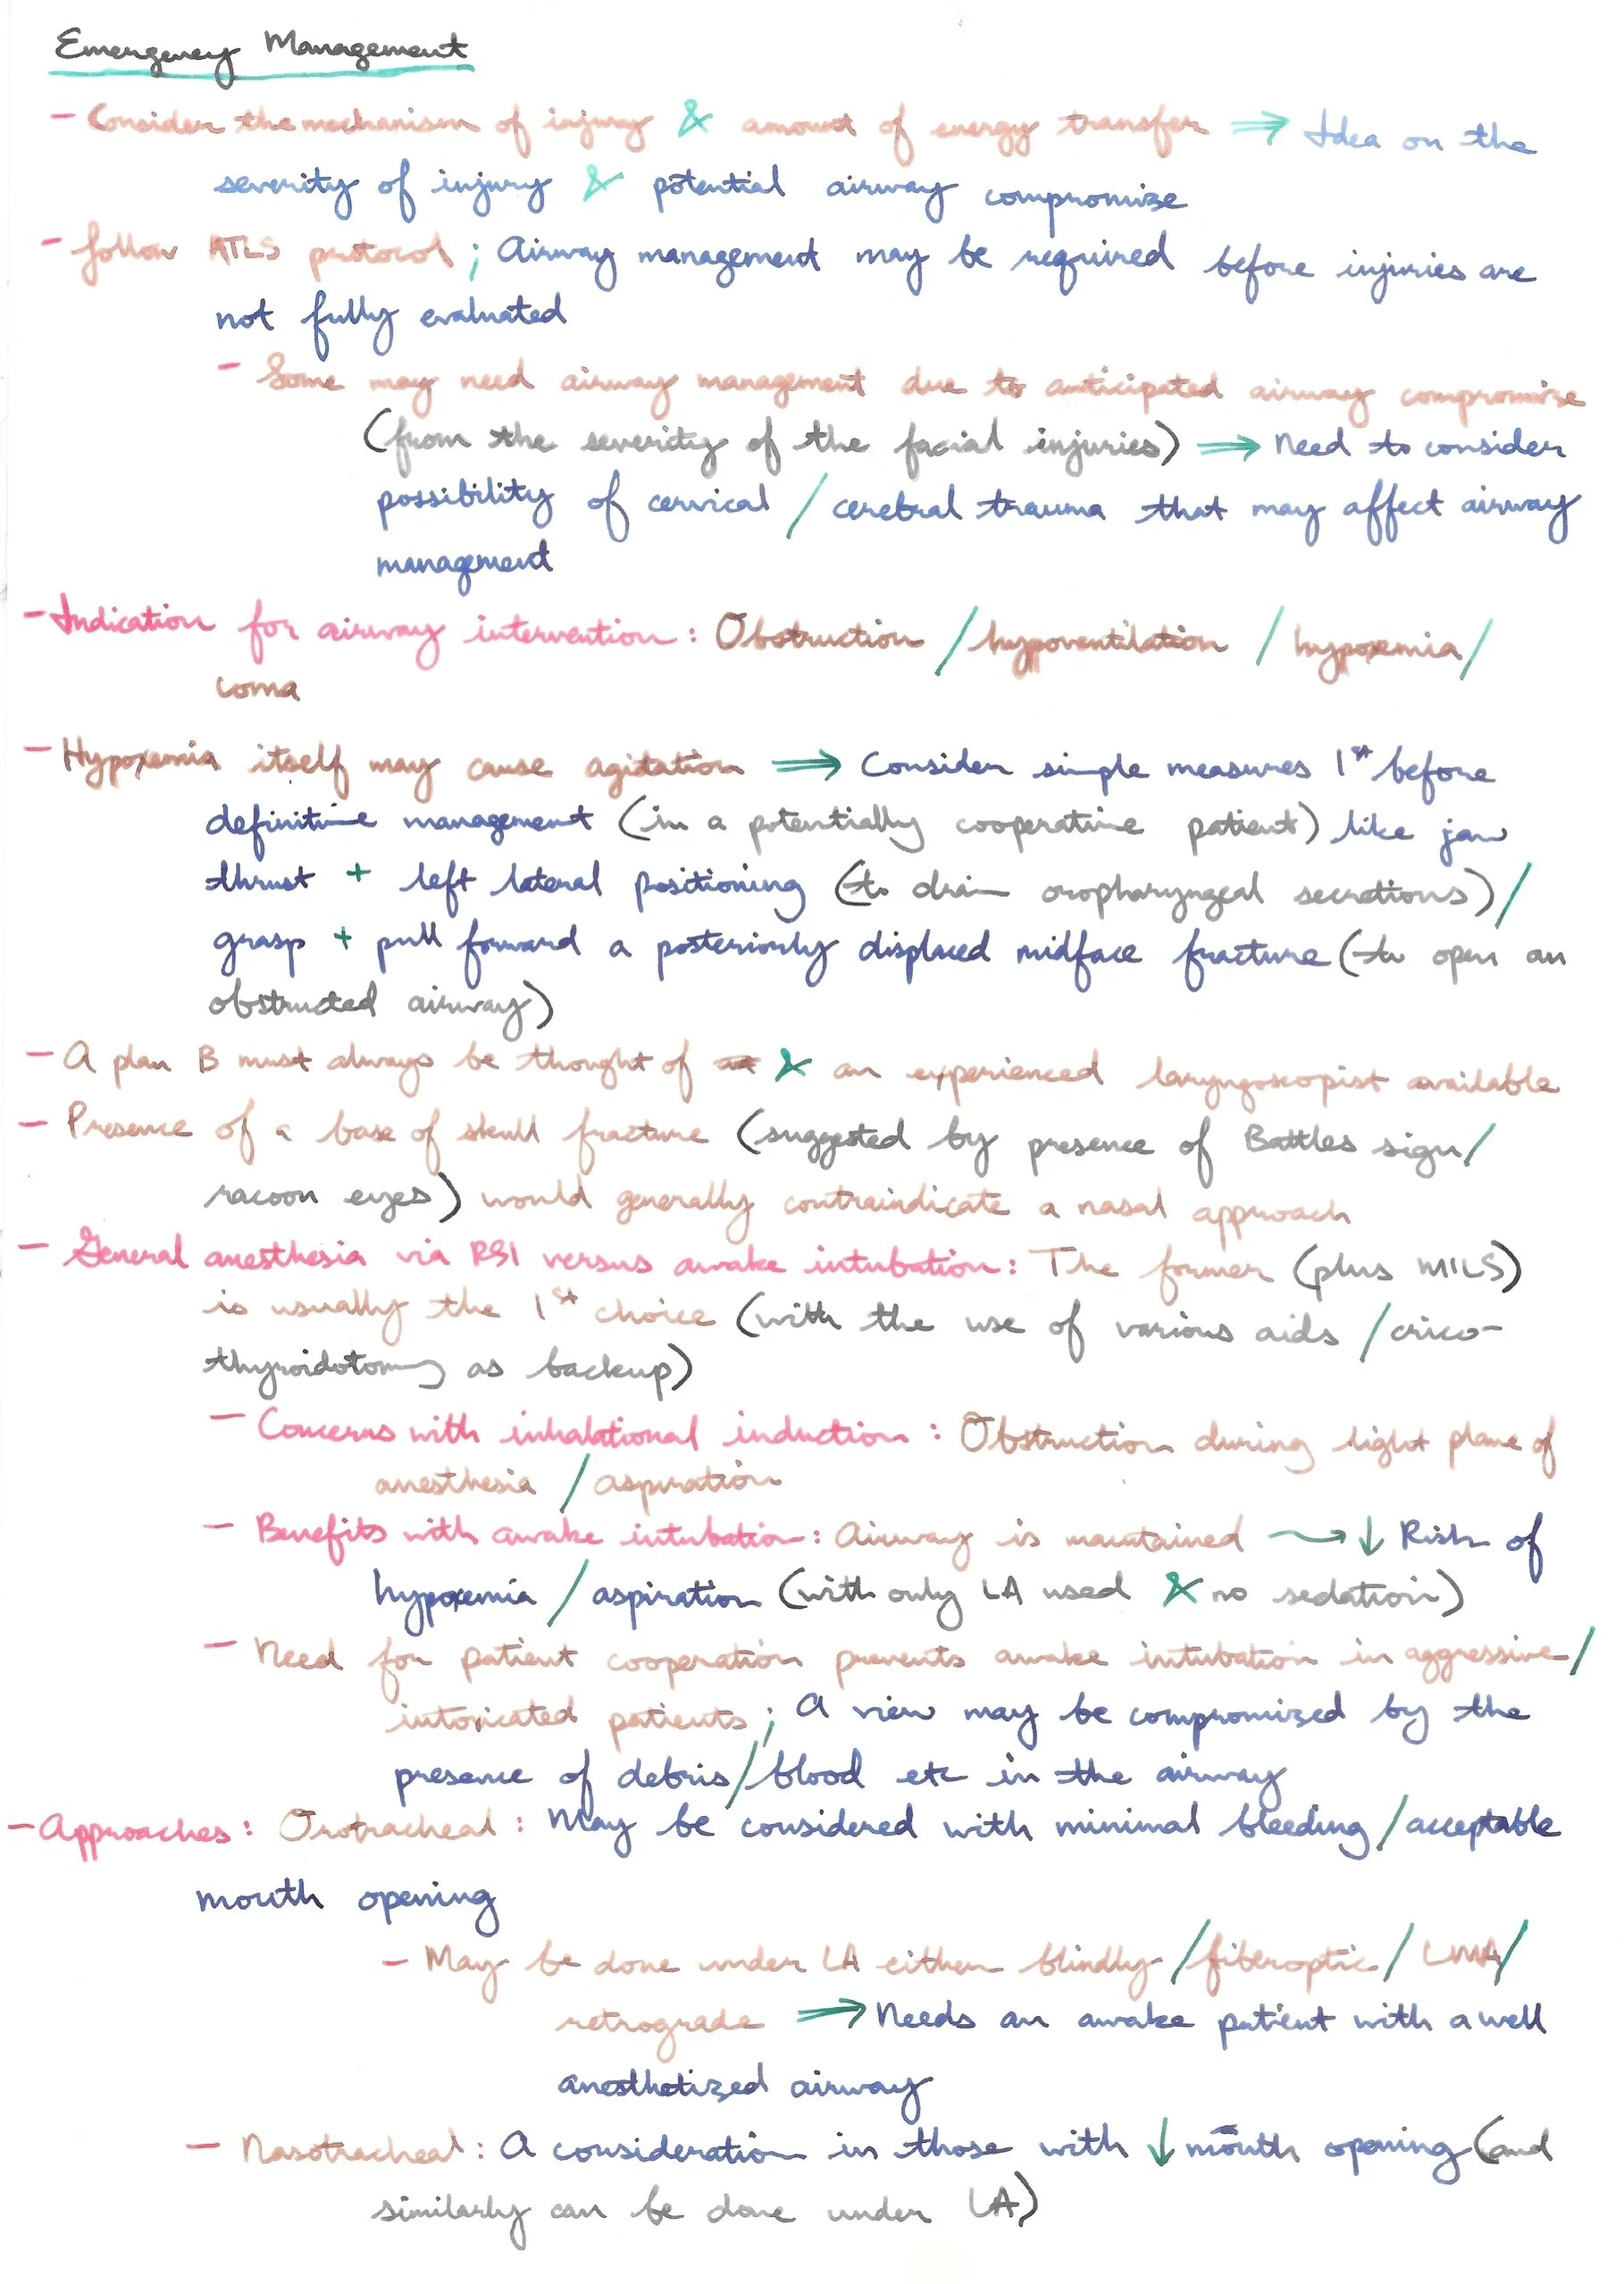 Emergency Management
- Consider the mechanism of injury & amount of energy transfer ⇒ Idea on the
severity of injury & potential airway compromise
- follow ATLS protocol ; Airway management may be required before injuries are
not fully evaluated
- Some may need airway management due to anticipated airway compromise
(from the severity of the facial injuries) ⇒ Need to consider
possibility of cervical / cerebral trauma that may affect airway
management
- Indication for airway intervention : Obstruction / hypoventilation / hypoxemia /
coma
- Hypoxemia itself may cause agitation ⇒ Consider simple measures 1st before
definitive management (in a potentially cooperative patient) like jaw
thrust + left lateral positioning (to drain oropharyngeal secretions) /
grasp + pull forward a posteriorly displaced midface fracture (to open an
obstructed airway)
- A plan B must always be thought of & an experienced laryngoscopist available
- Presence of a base of skull fracture (suggested by presence of Battles sign /
racoon eyes) would generally contraindicate a nasal approach
- General anesthesia via RSI versus awake intubation : The former (plus MILS)
is usually the 1st choice (with the use of various aids / crico-
thyroidotomy as backup)
- Concerns with inhalational induction : Obstruction during light plane of
anesthesia / aspiration
- Benefits with awake intubation : Airway is maintained → ↓ Risk of
hypoxemia / aspiration (with only LA used & no sedation)
- Need for patient cooperation prevents awake intubation in aggressive /
intoxicated patients ; A view may be compromized by the
presence of debris / blood etc in the airway
- Approaches : Orotracheal : May be considered with minimal bleeding / acceptable
mouth opening
- May be done under LA either blindly / fiberoptic / LMA /
retrograde ⇒ Needs an awake patient with a well
anesthetized airway
- Nasotracheal : A consideration in those with ↓ mouth opening (and
similarly can be done under LA)